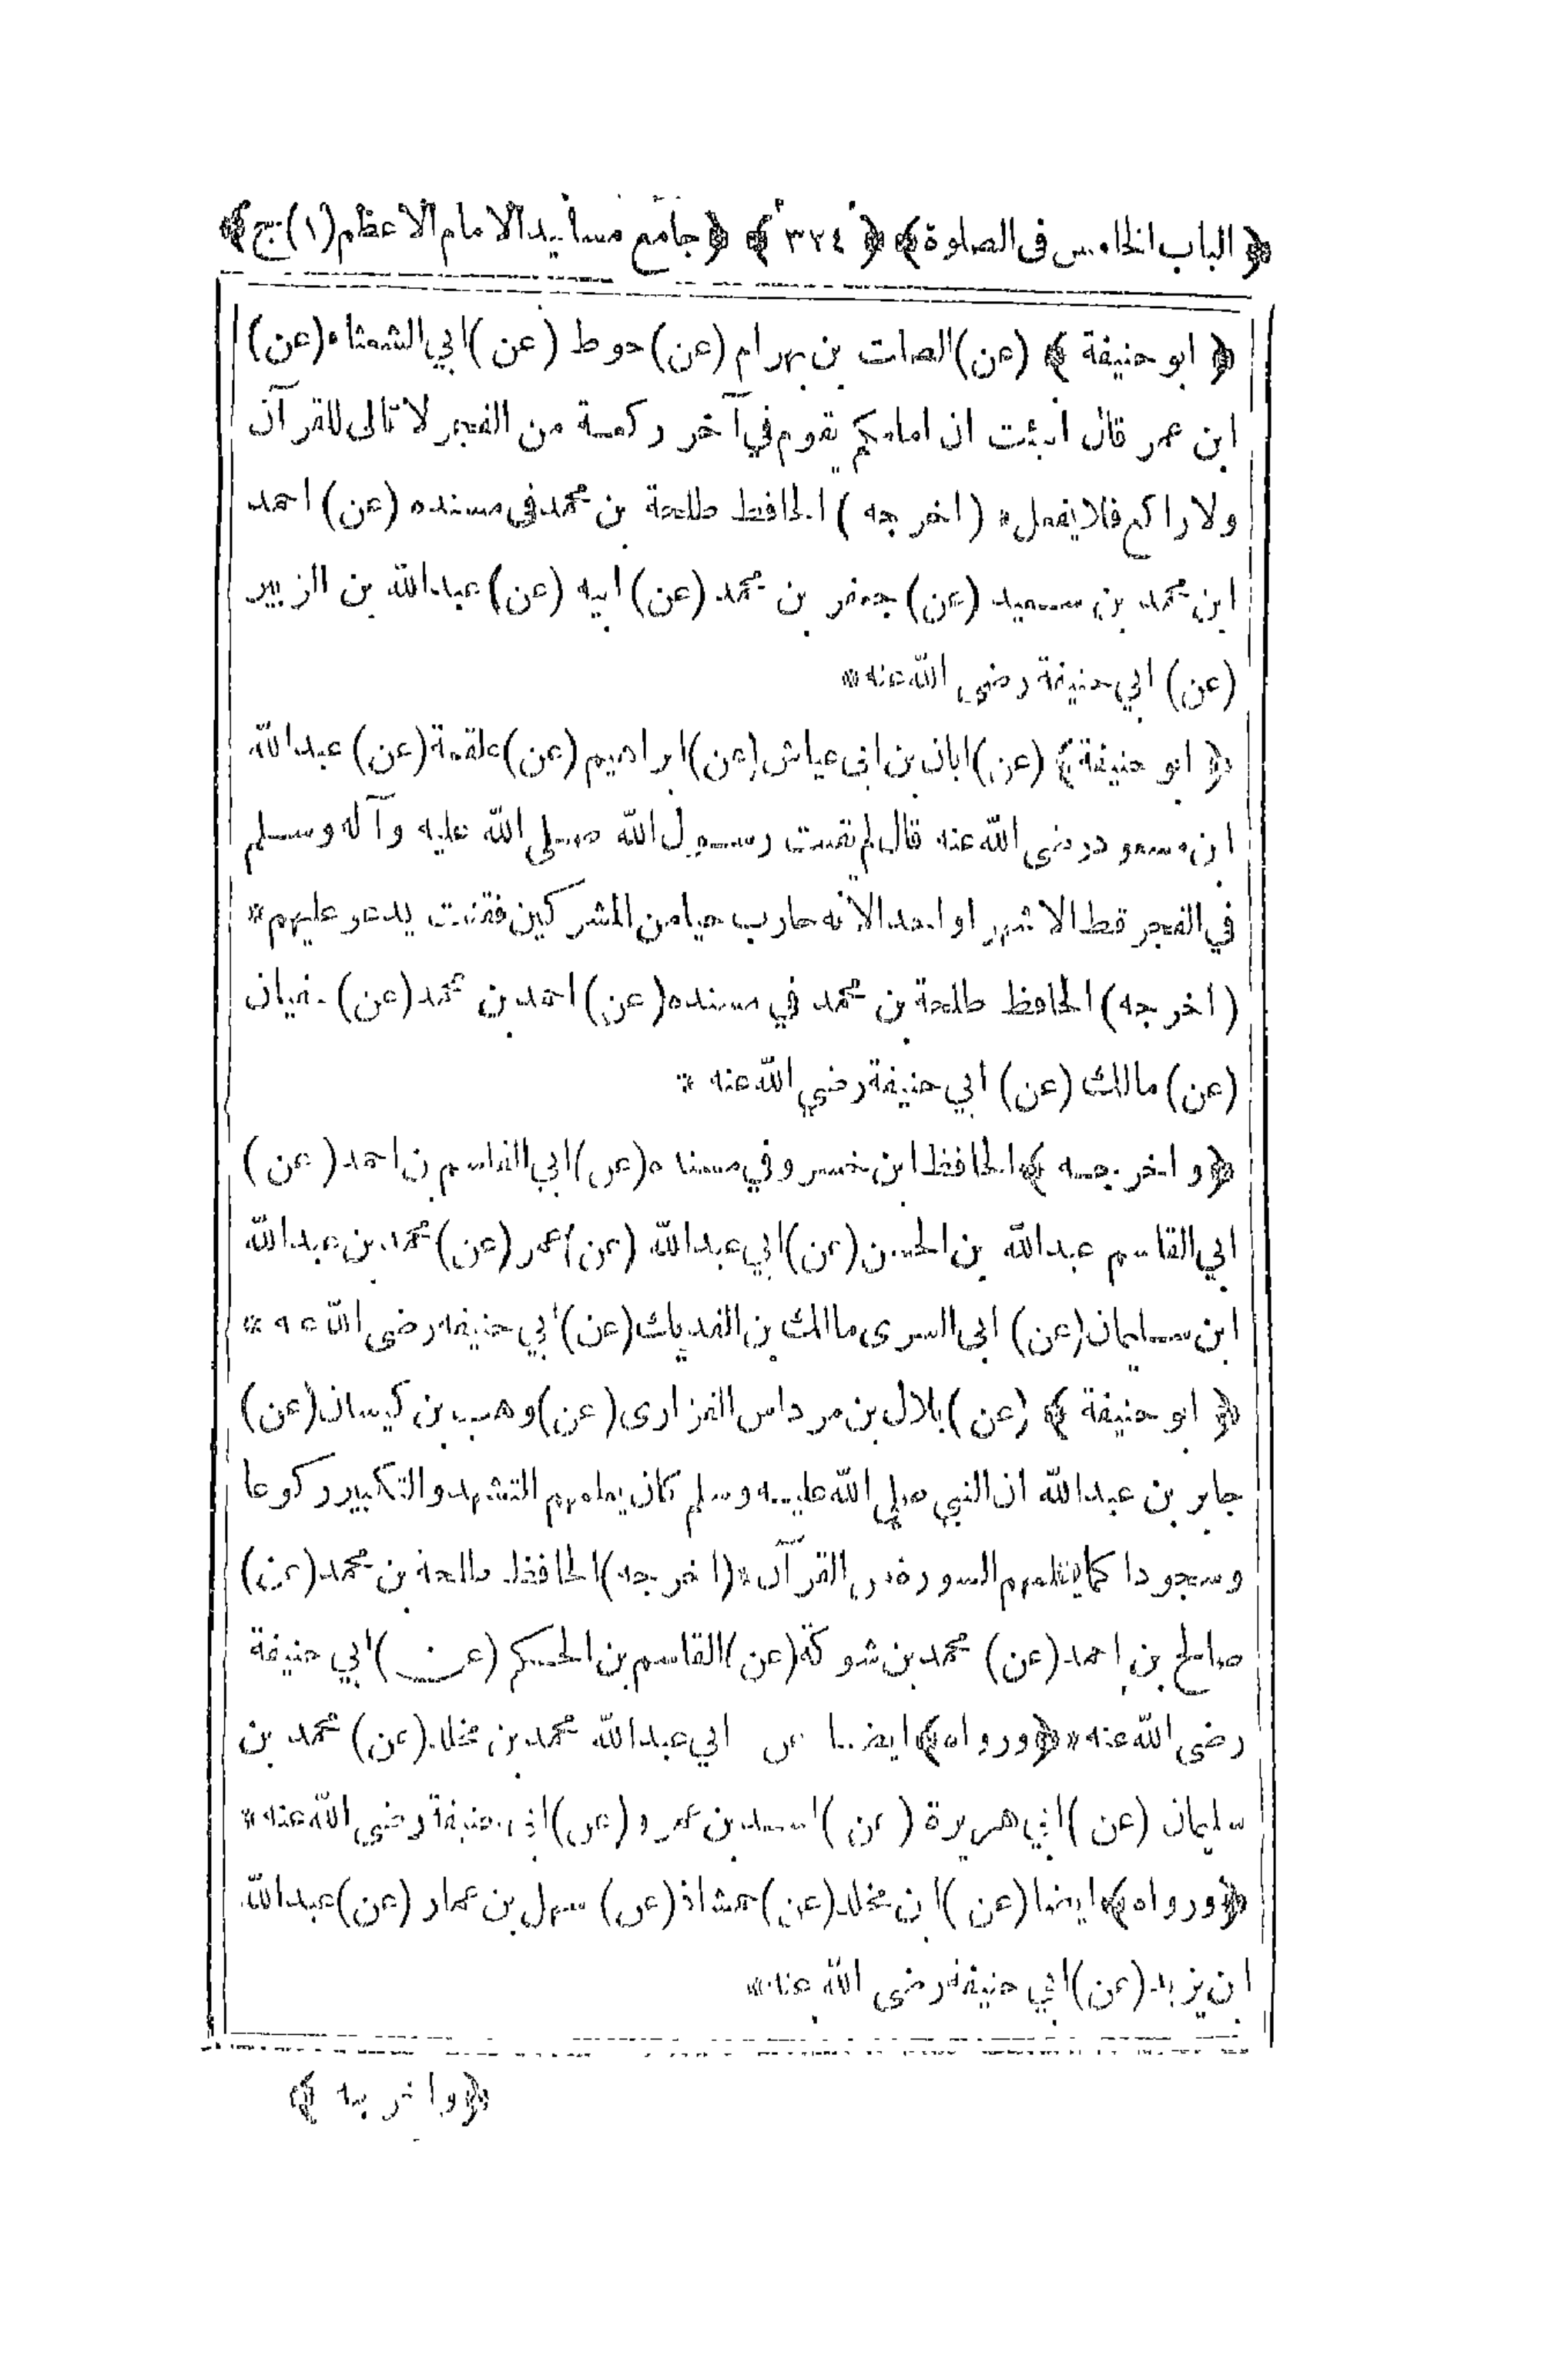 ﴿ الباب الخامس فى الصلوة ﴾ ﴿ ٣٢٤ ﴾ ﴿ جامع مسانيد الامام الاعظم (١) ج ﴾
﴿ ابو حنيفة ﴾ (عن) الصلت بن بهرام (عن) حوط (عن) ابي الشعثاء (عن)
ابن عمر قال انبئت ان امامكم يقوم في آخر ركعة من الفجر لا تالى للقرآن
ولا راكع فلا يفعل * (اخرجه) الحافظ طلحة بن محمد فى مسنده (عن) احمد
ابن محمد بن سعيد (عن) جعفر بن محمد (عن) ابيه (عن) عبدالله بن الزبير
(عن) ابي حنيفة رضى الله عنه *
﴿ ابو حنيفة ﴾ (عن) ابان بن ابى عياش (عن) ابراهيم (عن) علقمة (عن) عبدالله
ابن مسعود رضى الله عنه قال لم يقنت رسول الله صلى الله عليه وآله وسلم
في الفجر قط الا شهرا واحدا لانه حارب حيا من المشركين فقنت يدعو عليهم *
(اخرجه) الحافظ طلحة بن محمد في مسنده (عن) احمد بن محمد (عن)
(عن) مالك (عن) ابي حنيفة رضي الله عنه *
﴿ واخرجه ﴾ الحافظ ابن خسرو في مسنده (عن) ابي القاسم بن احمد (عن)
ابي القاسم عبدالله بن الحسن (عن) ابي عبدالله (عن) عمر (عن) محمد بن عبدالله
ابن سليمان (عن) ابى السرى مالك بن الفديك (عن) ابي حنيفه رضى الله عنه *
﴿ ابو حنيفة ﴾ (عن) بلال بن مرداس الفزارى (عن) وهب بن كيسان (عن)
جابر بن عبدالله ان النبي صلى الله عليه وسلم كان يعلمهم التشهد والتكبير ركوعا
وسجودا كما يعلمهم السورة من القرآن * (اخرجه) الحافظ طلحة بن محمد (عن)
صالح بن احمد (عن) محمد بن شوكة (عن) القاسم بن الحكم (عن) ابي حنيفة
رضى الله عنه * ﴿ ورواه ﴾ ايضا عن ابي عبدالله محمد بن مخلد (عن) محمد بن
سليمان (عن) ابي هريرة (عن) اسد بن عمرو (عن) ابى حنيفة رضى الله عنه *
﴿ ورواه ﴾ ايضا (عن) ابن مخلد (عن) حمشاذ (عن) سهل بن عمار (عن) عبدالله
ابن يزيد (عن) ابي حنيفة رضى الله عنه *
﴿ واخرجه ﴾